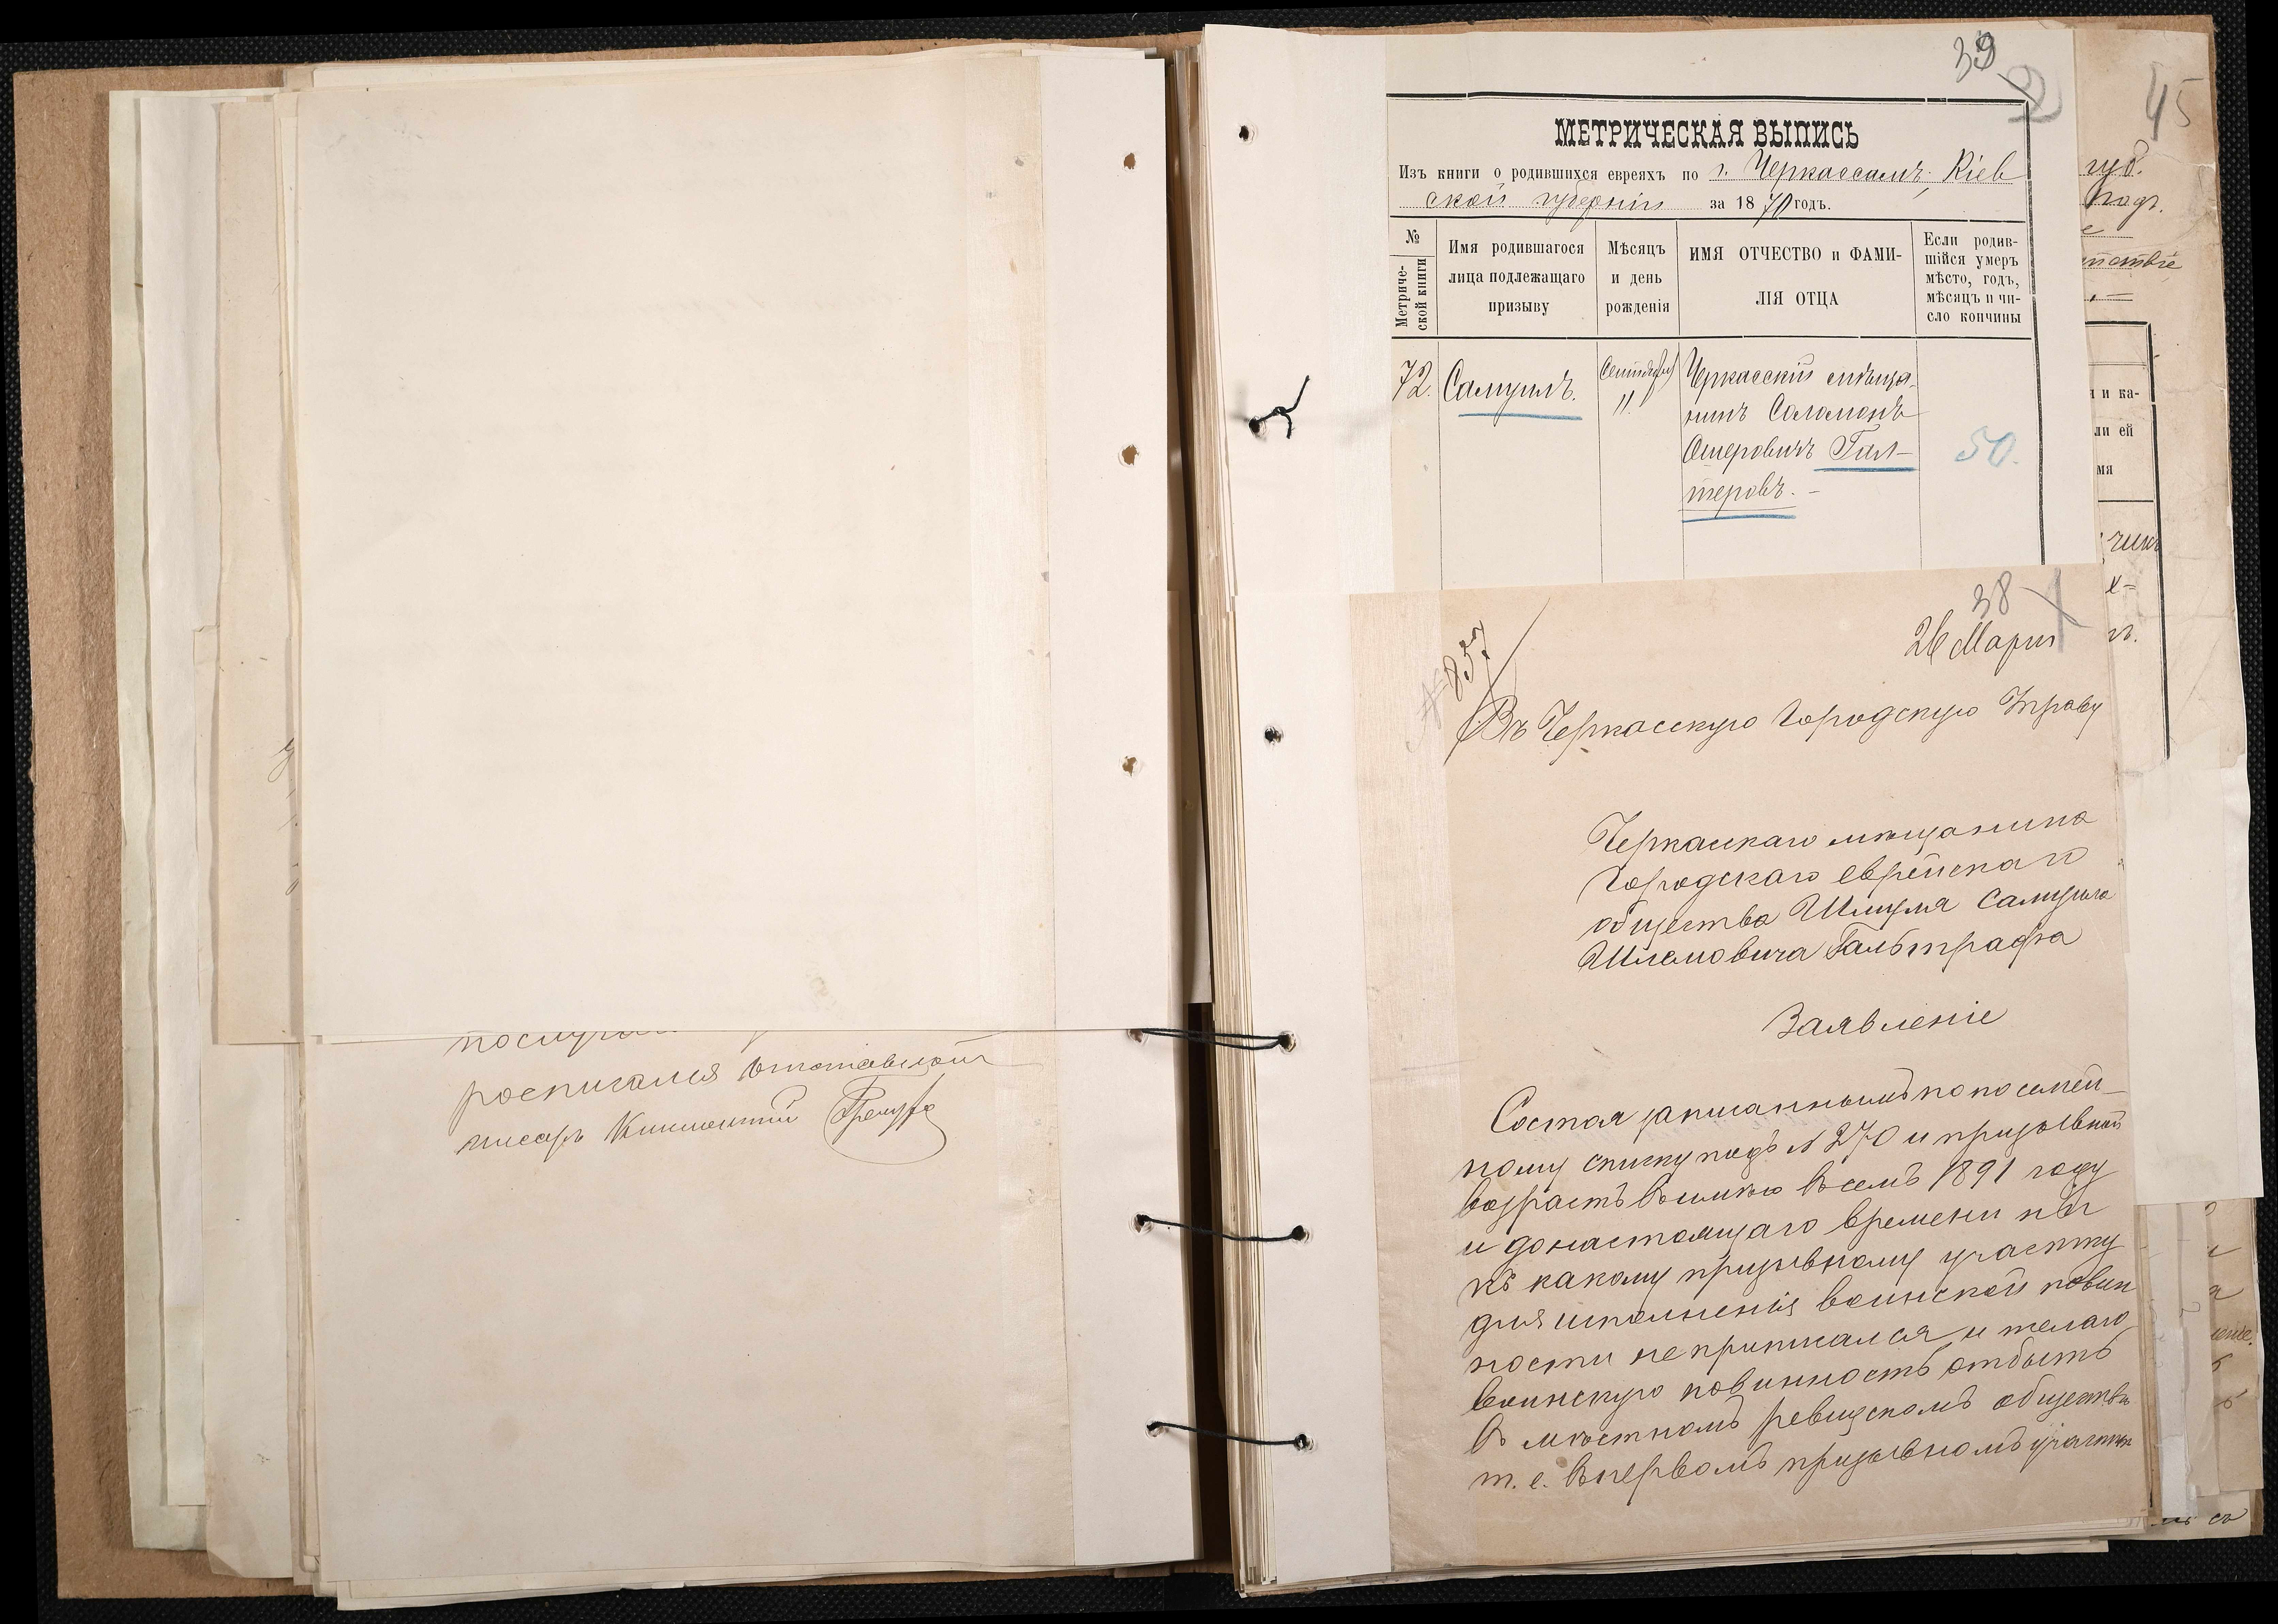 росписался отставной
писарь
39
45
МЕТРИЧЕСКАЯ ВЫПИСЬ
Изъ книги о родившихся евреяхъ по г. Черкассамъ, Кіев
ской губерніи за 1870 годъ.
№
Метриче-
ской книги
Имя родившагося
лица подлежащаго
призыву
Мѣсяцъ
и день
рожденія
ИМЯ ОТЧЕСТВО и ФАМИ-
ЛІЯ ОТЦА
Если родив-
шійся умеръ
мѣсто, годъ,
мѣсяцъ и чи-
сло кончины
72.
Самуилъ.
Сентября
11.
Черкасскій мѣща-
нинъ Соломонъ
Ошеровичъ Гал-
теровъ.-
50.
губ.
и ка-
ли ей
мя
38
26 Марта
№ 857
Въ Черкасскую Городскую Управу
Черкаскаго мѣщанина
Городскаго еврейскаго
общества Шмуля Самуила
Шлемовича Гальтрафа
Заявленіе
Состоя записаннымъ по посемей-
ному списку подъ № 270 и призывной
возрастъ имѣю въ семъ 1891 году
и до настоящаго времени ни
къ какому призывному участку
для исполненія воинской повин
ности не приписался, и желаю
воинскую повинность отбыть
въ мѣстномъ ревизскомъ обществѣ
т. е. въ первомъ призывномъ участкѣ